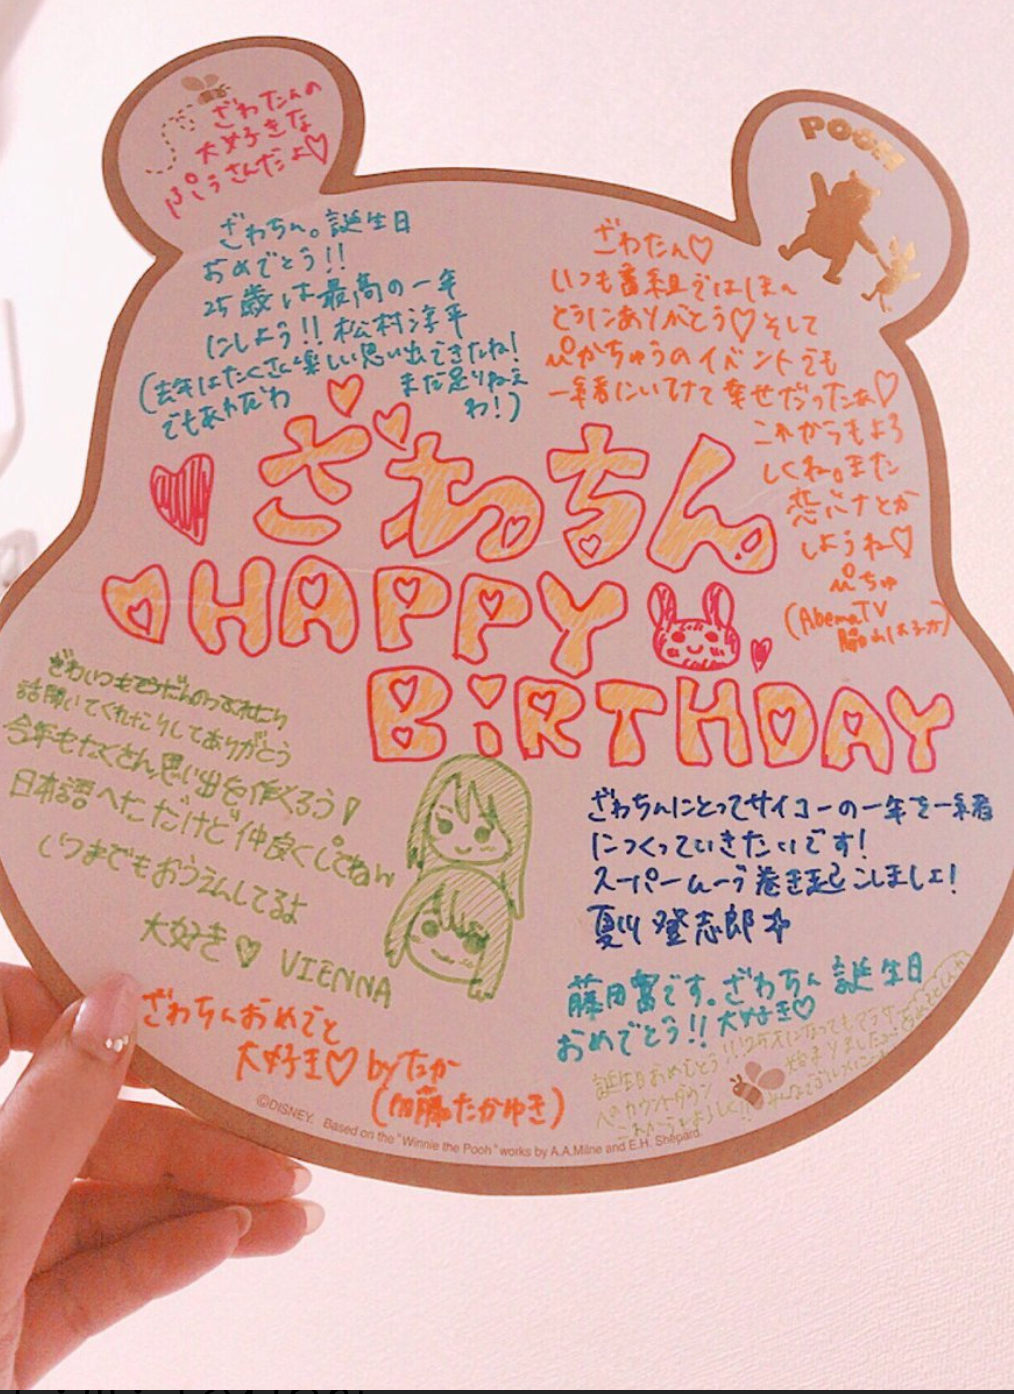 ざわたんの
大好きな
ぷぅさんだょ♡
POOH
ざわちん。誕生日
おめでとう!!
25歳は最高の一年
にしよう!! 松村淳平
(去年はたくさん楽しい思い出できたね!
でもあれだわ
まだ足りねぇ
わ!)
ざわたん♡
いつも番組ではほん
とうにありがとう♡そして
ぴかちゅうのイベントでも
一緒にいけて幸せだったぁ♡
これからもよろ
しくね。また
恋バナとか
しようね♡
ぴちゅ
(AbemaTV
ざわちん
HAPPY
BiRTHDAY
ざわいつもそうだんのってくれたり
話聞いてくれたりしてありがとう
今年もたくさん思い出を作くろう!
日本語へただけど仲良くしてねん
いつまでもおうえんしてるよ
大好き♡ VIENNA
ざわちんにとってサイコーの一年を一緒
につくっていきたいです!
スーパームーブ巻き起こしましょ!
夏川登志郎
藤田富です。ざわちん誕生日
おめでとう!! 大好き♡
ざわちんおめでと
大好き♡ byたか
(加藤たかゆき)
誕生日おめでとう!!25才になってもアラサー
へのカウントダウン
始まりましたね
これからもよろしく!!
©DISNEY. Based on the "Winnie the Pooh" works by A.A.Milne and E.H. Shepard.